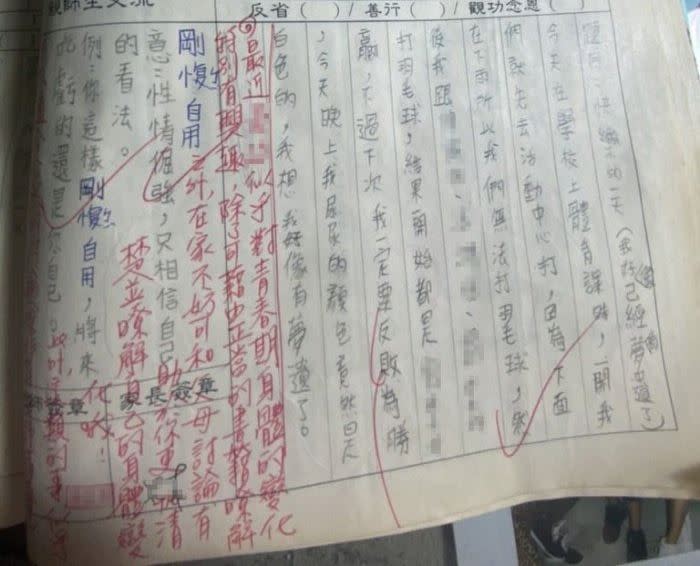 親師生交流
反省( )/善行( )/觀功念恩( )
題目:快樂的一天(我好像已經夢遺了)
今天在學校上體育課時,一開我
們就先去活動中心打,因為下面
在下雨所以我們無法打羽毛球,然
後我跟
打羽毛球,結果開始都是
贏,不過下次我一定要反敗為勝
,今天晚上我尿尿的顏色竟然
白色的,我想我好像有夢遺了。
◎最近 似乎對青春期身體的變化
特別有興趣,除了可藉由正當的書籍瞭解
之外,在家不妨可和父母討論,有
助於你更清
楚並瞭解自己的身體變
化哦!
剛愎自用
意:性情倔強,只相信自己
的看法。
例:你這樣剛愎自用,將來
吃虧的還是你自己。
家長簽章
師簽章